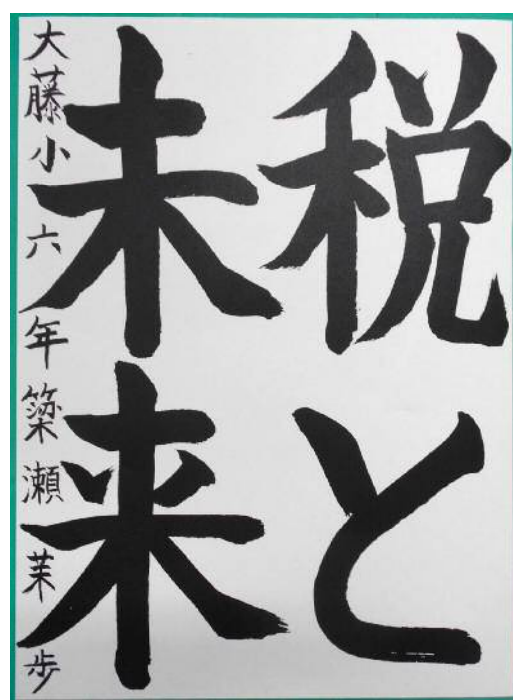 税と
未来
大藤小六年築瀬茉歩